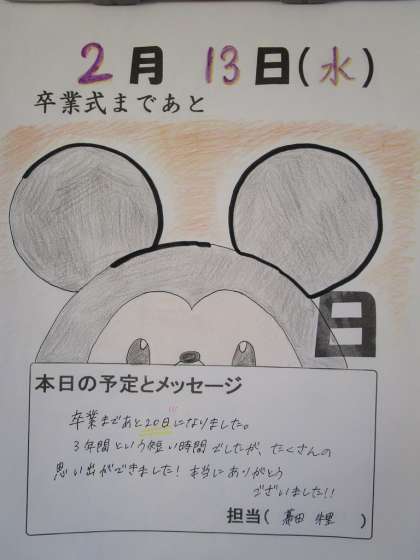 2月 13日(水)
卒業式まであと
日
本日の予定とメッセージ
卒業まであと20日になりました。
3年間という短い時間でしたが、たくさんの
思い出ができました!本当にありがとう
ございました!!
担当( )